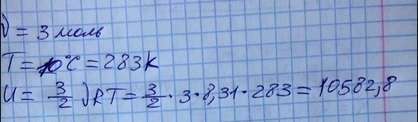 ν = 3 моль
T = 10°C = 283K
U = 3/2 νRT = 3/2 · 3 · 8,31 · 283 = 10582,8